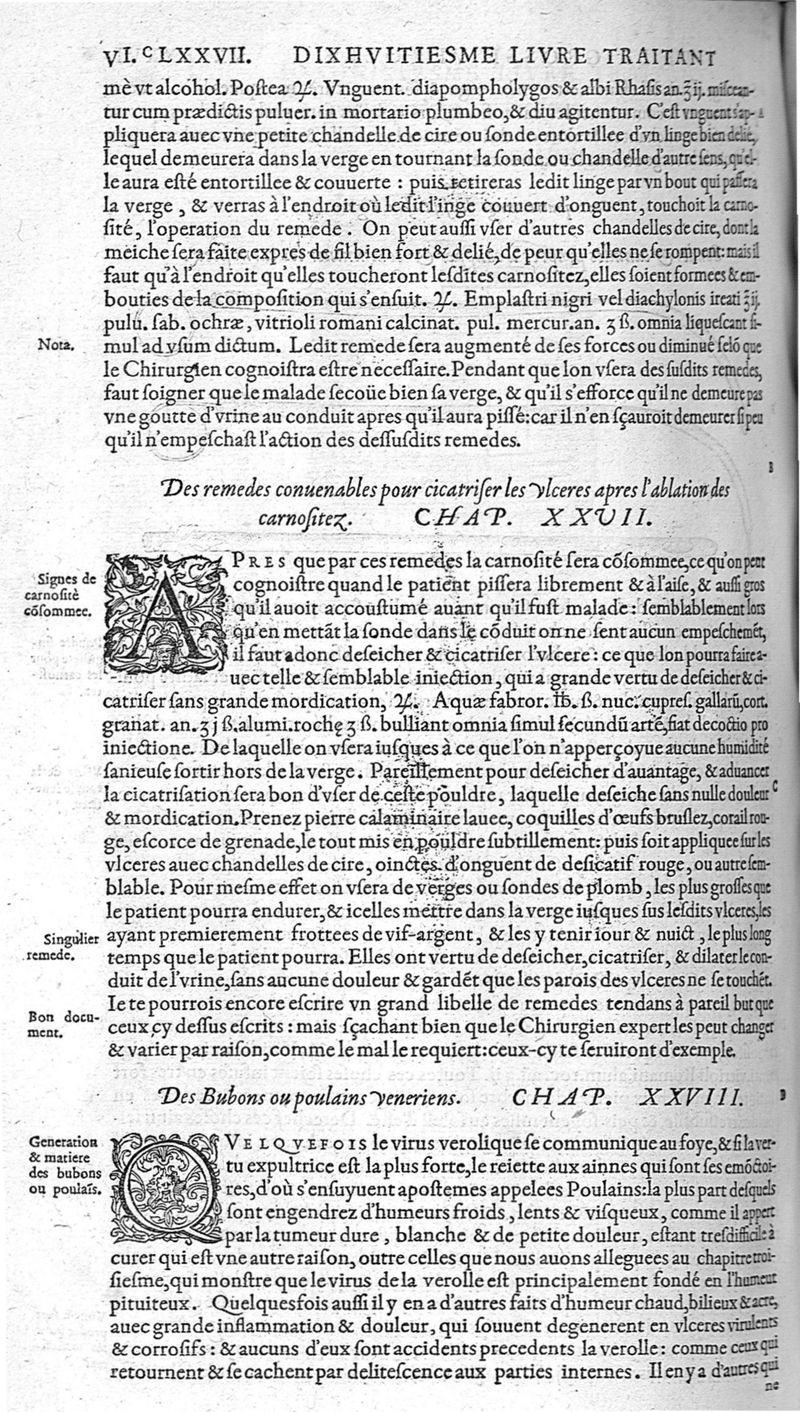 VI.C LXXVII. DIXHVITIESME LIVRE TRAITANT
mè vt alcohol. Postea ℞. Vnguent. diapompholygos & albi Rhasis an. ℥ij. miscean-
tur cum prædictis puluer. in mortario plumbeo, & diu agitentur. C'est vnguent s'ap-
pliquera auec vne petite chandelle de cire ou sonde entortillee d'vn linge bien delié,
lequel demeurera dans la verge en tournant la sonde ou chandelle d'autre sens, qu'el-
le aura esté entortillee & couuerte : puis retireras ledit linge par vn bout qui passera
la verge, & verras à l'endroit où ledit linge couuert d'onguent, touchoit la carno-
sité, l'operation du remede. On peut aussi vser d'autres chandelles de cire, dont la
meiche sera faite expres de fil bien fort & delié, de peur qu'elles ne se rompent: mais il
faut qu'à l'endroit qu'elles toucheront lesdites carnositez, elles soient formees & em-
bouties de la composition qui s'ensuit. ℞. Emplastri nigri vel diachylonis ireati ℥ij.
pulu. sab. ochræ, vitrioli romani calcinat. pul. mercur. an. ʒ ß. omnia liquescant si-
Nota.
mul ad vsum dictum. Ledit remede sera augmenté de ses forces ou diminué selõ que
le Chirurgien cognoistra estre necessaire. Pendant que lon vsera des susdits remedes,
faut soigner que le malade secoüe bien sa verge, & qu'il s'efforce qu'il ne demeure pas
vne goutte d'vrine au conduit apres qu'il aura pissé: car il n'en sçauroit demeurer si peu
qu'il n'empeschast l'action des dessusdits remedes.
Des remedes conuenables pour cicatriser les vlceres apres l'ablation des
carnositez. CHAP. XXVII.
Signes de
carnosité
cõsommee.
APRES que par ces remedes la carnosité sera cõsommee, ce qu'on peut
cognoistre quand le patient pissera librement & à l'aise, & aussi gros
qu'il auoit accoustumé auant qu'il fust malade : semblablement lors
qu'en mettãt la sonde dans le cõduit on ne sent aucun empeschemẽt,
il faut adonc deseicher & cicatriser l'vlcere : ce que lon pourra faire a-
uec telle & semblable iniection, qui a grande vertu de deseicher & ci-
catriser sans grande mordication, ℞. Aquæ fabror. ℔. ß. nuc. cupres. gallarũ, cort.
granat. an. ʒ j ß. alumi. rochę ʒ ß. bulliant omnia simul secundũ artẽ, fiat decoctio pro
iniectione. De laquelle on vsera iusques à ce que l'on n'apperçoyue aucune humidité
sanieuse sortir hors de la verge. Pareillement pour deseicher d'auantage, & aduancer
la cicatrisation sera bon d'vser de ceste pouldre, laquelle deseiche sans nulle douleur C
& mordication. Prenez pierre calaminaire lauee, coquilles d'œufs bruslez, corail rou-
ge, escorce de grenade, le tout mis en pouldre subtillement: puis soit appliquee sur les
vlceres auec chandelles de cire, oinctes d'onguent de desicatif rouge, ou autre sem-
blable. Pour mesme effet on vsera de verges ou sondes de plomb, les plus grosses que
le patient pourra endurer, & icelles mettre dans la verge iusques sus lesdits vlceres, les
Singulier
remede.
ayant premierement frottees de vif-argent, & les y tenir iour & nuict, le plus long
temps que le patient pourra. Elles ont vertu de deseicher, cicatriser, & dilater le con-
duit de l'vrine, sans aucune douleur & gardẽt que les parois des vlceres ne se touchẽt.
Ie te pourrois encore escrire vn grand libelle de remedes tendans à pareil but que
Bon docu-
ment.
ceux cy dessus escrits : mais sçachant bien que le Chirurgien expert les peut changer
& varier par raison, comme le mal le requiert: ceux-cy te seruiront d'exemple.
Des Bubons ou poulains veneriens. CHAP. XXVIII.
Generation
& matiere
des bubons
ou poulaĩs.
QVELQVEFOIS le virus verolique se communique au foye, & si la ver-
tu expultrice est la plus forte, le reiette aux ainnes qui sont ses emõctoi-
res, d'où s'ensuyuent apostemes appelees Poulains: la plus part desquels
sont engendrez d'humeurs froids, lents & visqueux, comme il appert
par la tumeur dure, blanche & de petite douleur, estant tresdifficile à
curer qui est vne autre raison, outre celles que nous auons alleguees au chapitre troi-
siesme, qui monstre que le virus de la verolle est principalement fondé en l'humeur
pituiteux. Quelquesfois aussi il y en a d'autres faits d'humeur chaud, bilieux & acre,
auec grande inflammation & douleur, qui souuent degenerent en vlceres virulents
& corrosifs : & aucuns d'eux sont accidents precedents la verolle : comme ceux qui
retournent & se cachent par delitescence aux parties internes. Il en y a d'autres qui
ne